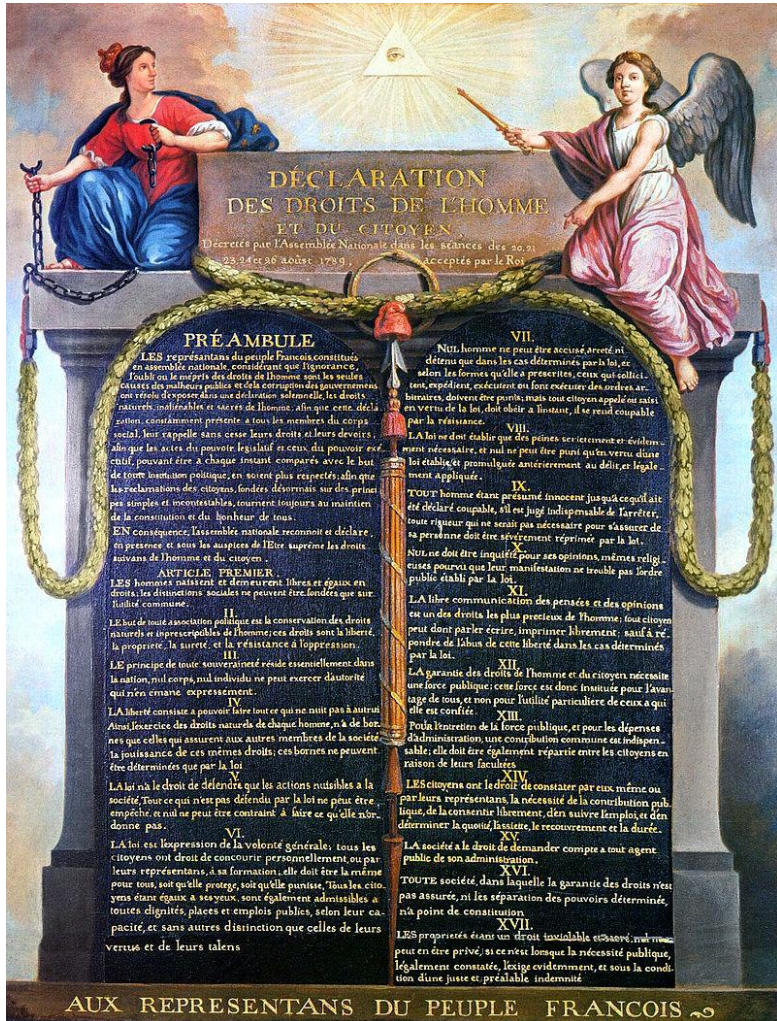 DÉCLARATION
DES DROITS DE L'HOMME
ET DU CITOYEN,
Décretés par l'Assemblée Nationale dans les séances des 20, 21
23, 24 et 26 août 1789, acceptés par le Roi
PRÉAMBULE
LES représantans du peuple Francois, constitués
en assemblée nationale, considérant que l'ignorance,
l'oubli ou le mépris des droits de l'homme sont les seules
causes des malheurs publics et de la corruption des gouvernemens
ont résolu d'exposer, dans une déclaration solemnelle, les droits
naturels, inaliénables et sacrés de l'homme; afin que cette décla
ration, constamment présente a tous les membres du corps
social, leur rappelle sans cesse leurs droits et leurs devoirs,
afin que les actes du pouvoir legislatif et ceux du pouvoir exé
cutif, pouvant être a chaque instant comparés avec le but
de toute institution politique, en soient plus respectés; afin que
les reclamations des citoyens, fondées désormais sur des princi
pes simples et incontestables, tournent toujours au maintien
de la constitution et du bonheur de tous.
EN conséquence, l'assemblée nationale reconnoit et déclare,
en presence et sous les auspices de l'Etre suprême les droits
suivans de l'homme et du citoyen.
ARTICLE PREMIER.
LES hommes naissent et demeurent libres et égaux en
droits; les distinctions sociales ne peuvent être fondées que sur
l'utilité commune.
II.
LE but de toute association politique est la conservation des droits
naturels et inprescriptibles de l'homme; ces droits sont la liberté,
la propriete, la sureté, et la résistance à l'oppression.
III.
LE principe de toute souveraineté réside essentiellement dans
la nation, nul corps, nul individu ne peut exercer d'autorité
qui n'en emane expressement.
IV
LA liberté consiste a pouvoir faire tout ce qui ne nuit pas à autrui
Ainsi, l'exercice des droits naturels de chaque homme, n'a de bor-
nes que celles qui assurent aux autres membres de la société
la jouissance de ces mêmes droits; ces bornes ne peuvent
être déterminées que par la loi
V.
LA loi n'a le droit de défendre que les actions nuisibles a la
société, Tout ce qui n'est pas défendu par la loi ne peut être
empêché, et nul ne peut être contraint à faire ce qu'elle n'or-
donne pas.
VI.
LA loi est l'expression de la volonté générale; tous les
citoyens ont droit de concourir personnellement, ou par
leurs représentans, à sa formation; elle doit être la même
pour tous, soit qu'elle protege, soit qu'elle punisse, Tous les cito-
yens étant égaux a ses yeux, sont également admissibles a
toutes dignités, places et emplois publics, selon leur ca-
pacité, et sans autres distinction que celles de leurs
vertus et de leurs talens
VII.
NUL homme ne peut être accusé, arreté, ni
détenu que dans les cas déterminés par la loi, et
selon les formes qu'elle a prescrites, ceux qui sollici-
tent, expédient, exécutent ou font exécuter des ordres ar-
bitraires, doivent être punis; mais tout citoyen appelé ou saisi
en vertu de la loi, doit obéir a l'instant, il se rend coupable
par la résistance.
VIII.
LA loi ne doit établir que des peines strictement et évidem-
ment nécessaire, et nul ne peut être puni qu'en vertu d'une
loi établie, et promulguée antérierement au délit, et légale-
ment appliquée.
IX.
TOUT homme étant présumé innocent jusqu'a ce qu'il ait
été déclaré coupable, s'il est jugé indispensable de l'arrêter,
toute rigueur qui ne serait pas nécessaire pour s'assurer de
sa personne doit être sévèrement réprimée par la loi.
X.
NUL ne doit être inquiété pour ses opinions, mêmes religi-
euses pourvu que leur manifestation ne trouble pas l'ordre
public établi par la loi.
XI.
LA libre communication des pensées et des opinions
est un des droits les plus precieux de l'homme; tout citoyen
peut dont parler écrire, imprimer librement; sauf à ré-
pondre de l'abus de cette liberté dans les cas déterminés
par la loi.
XII.
LA garantie des droits de l'homme et du citoyen nécessite
une force publique; cette force est donc instituée pour l'avan-
tage de tous, et non pour l'utilité particuliere de ceux a qui
elle est confiée.
XIII.
POUR l'entretien de la force publique, et pour les dépenses
d'administration, une contribution commune est indispen-
sable; elle doit être également répartie entre les citoyens en
raison de leurs facultées
XIV.
LES citoyens ont le droit de constater par eux même ou
par leurs représentans, la nécessité de la contribution pub-
lique, de la consentir librement, d'en suivre l'emploi, et d'en
déterminer la quotité, l'assiette, le recouvrement et la durée.
XV.
LA société a le droit de demander compte a tout agent
public de son administration.
XVI.
TOUTE société, dans laquelle la garantie des droits n'est
pas assurée, ni les séparation des pouvoirs déterminée,
n'a point de constitution
XVII.
LES proprietés étant un droit inviolable et sacré, nul ne
peut en être privé, si ce n'est lorsque la nécessité publique,
légalement constatée, l'exige evidemment, et sous la condi-
tion d'une juste et préalable indemnité
AUX REPRESENTANS DU PEUPLE FRANCOIS